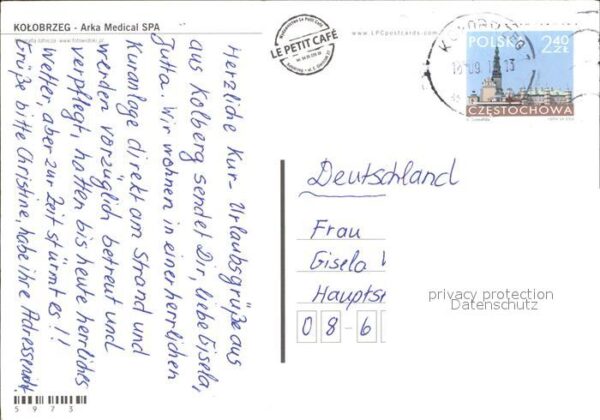 KOŁOBRZEG - Arka Medical SPA
LE PETIT CAFÉ
www.LPCpostcards.com
KOŁOBRZEG
POLSKA
2,40
ZŁ
CZĘSTOCHOWA
Herzliche Kur-Urlaubsgrüße aus
aus Kolberg sendet Dir, liebe Gisela,
Jutta. Wir wohnen in einer herrlichen
Kuranlage direkt am Strand und
werden vorzüglich betreut und
verpflegt, hatten bis heute herrliches
Wetter, aber zur Zeit stürmt es!!
Grüße bitte Christine, habe ihre Adresse nicht.
Deutschland
Frau
Gisela
Haupts
0 8 - 6
privacy protection
Datenschutz
5973